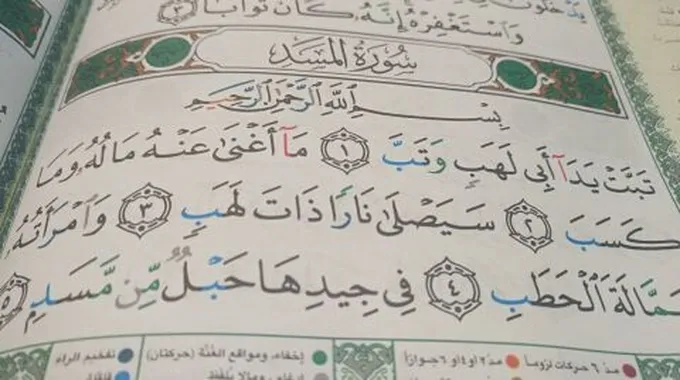 وَاسْتَغْفِرْهُ إِنَّهُ كَانَ تَوَّابًا ٣
سُورَةُ المَسَدِ
بِسْمِ اللَّهِ الرَّحْمَٰنِ الرَّحِيمِ
تَبَّتْ يَدَآ أَبِي لَهَبٍ وَتَبَّ ١ مَآ أَغْنَىٰ عَنْهُ مَالُهُۥ وَمَا
كَسَبَ ٢ سَيَصْلَىٰ نَارًا ذَاتَ لَهَبٍ ٣ وَٱمْرَأَتُهُۥ
حَمَّالَةَ ٱلْحَطَبِ ٤ فِي جِيدِهَا حَبْلٌ مِّن مَّسَدٍ ٥
مدّ ٦ حركات لزوماً مدّ٢ أو٤ أو ٦ جوازاً إخفاء، ومواقع الغُنَّة (حركتان) تفخيم الراء